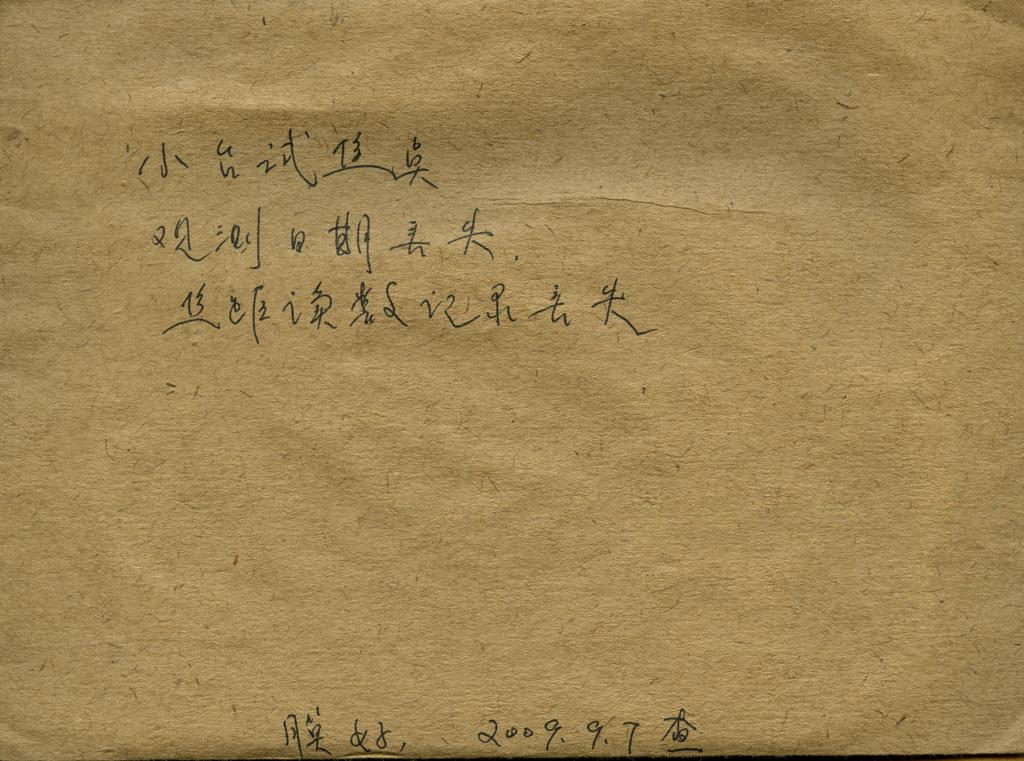 小台试丝具
观测日期丢失.
丝距读数记录丢失
膜好, 2009.9.7查